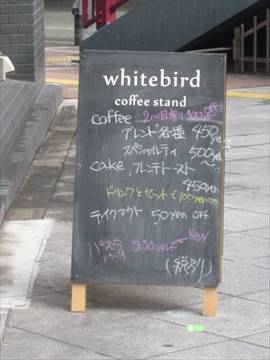 whitebird
coffee stand
coffee 2杯目割 100円off
ブレンド各種 450yen
スペシャルティ 500yen
cake, フレンチトースト
450yen
ドリンクとセットで100yen off
テイクアウト 50yen off
パスタ 800yen
(税別)